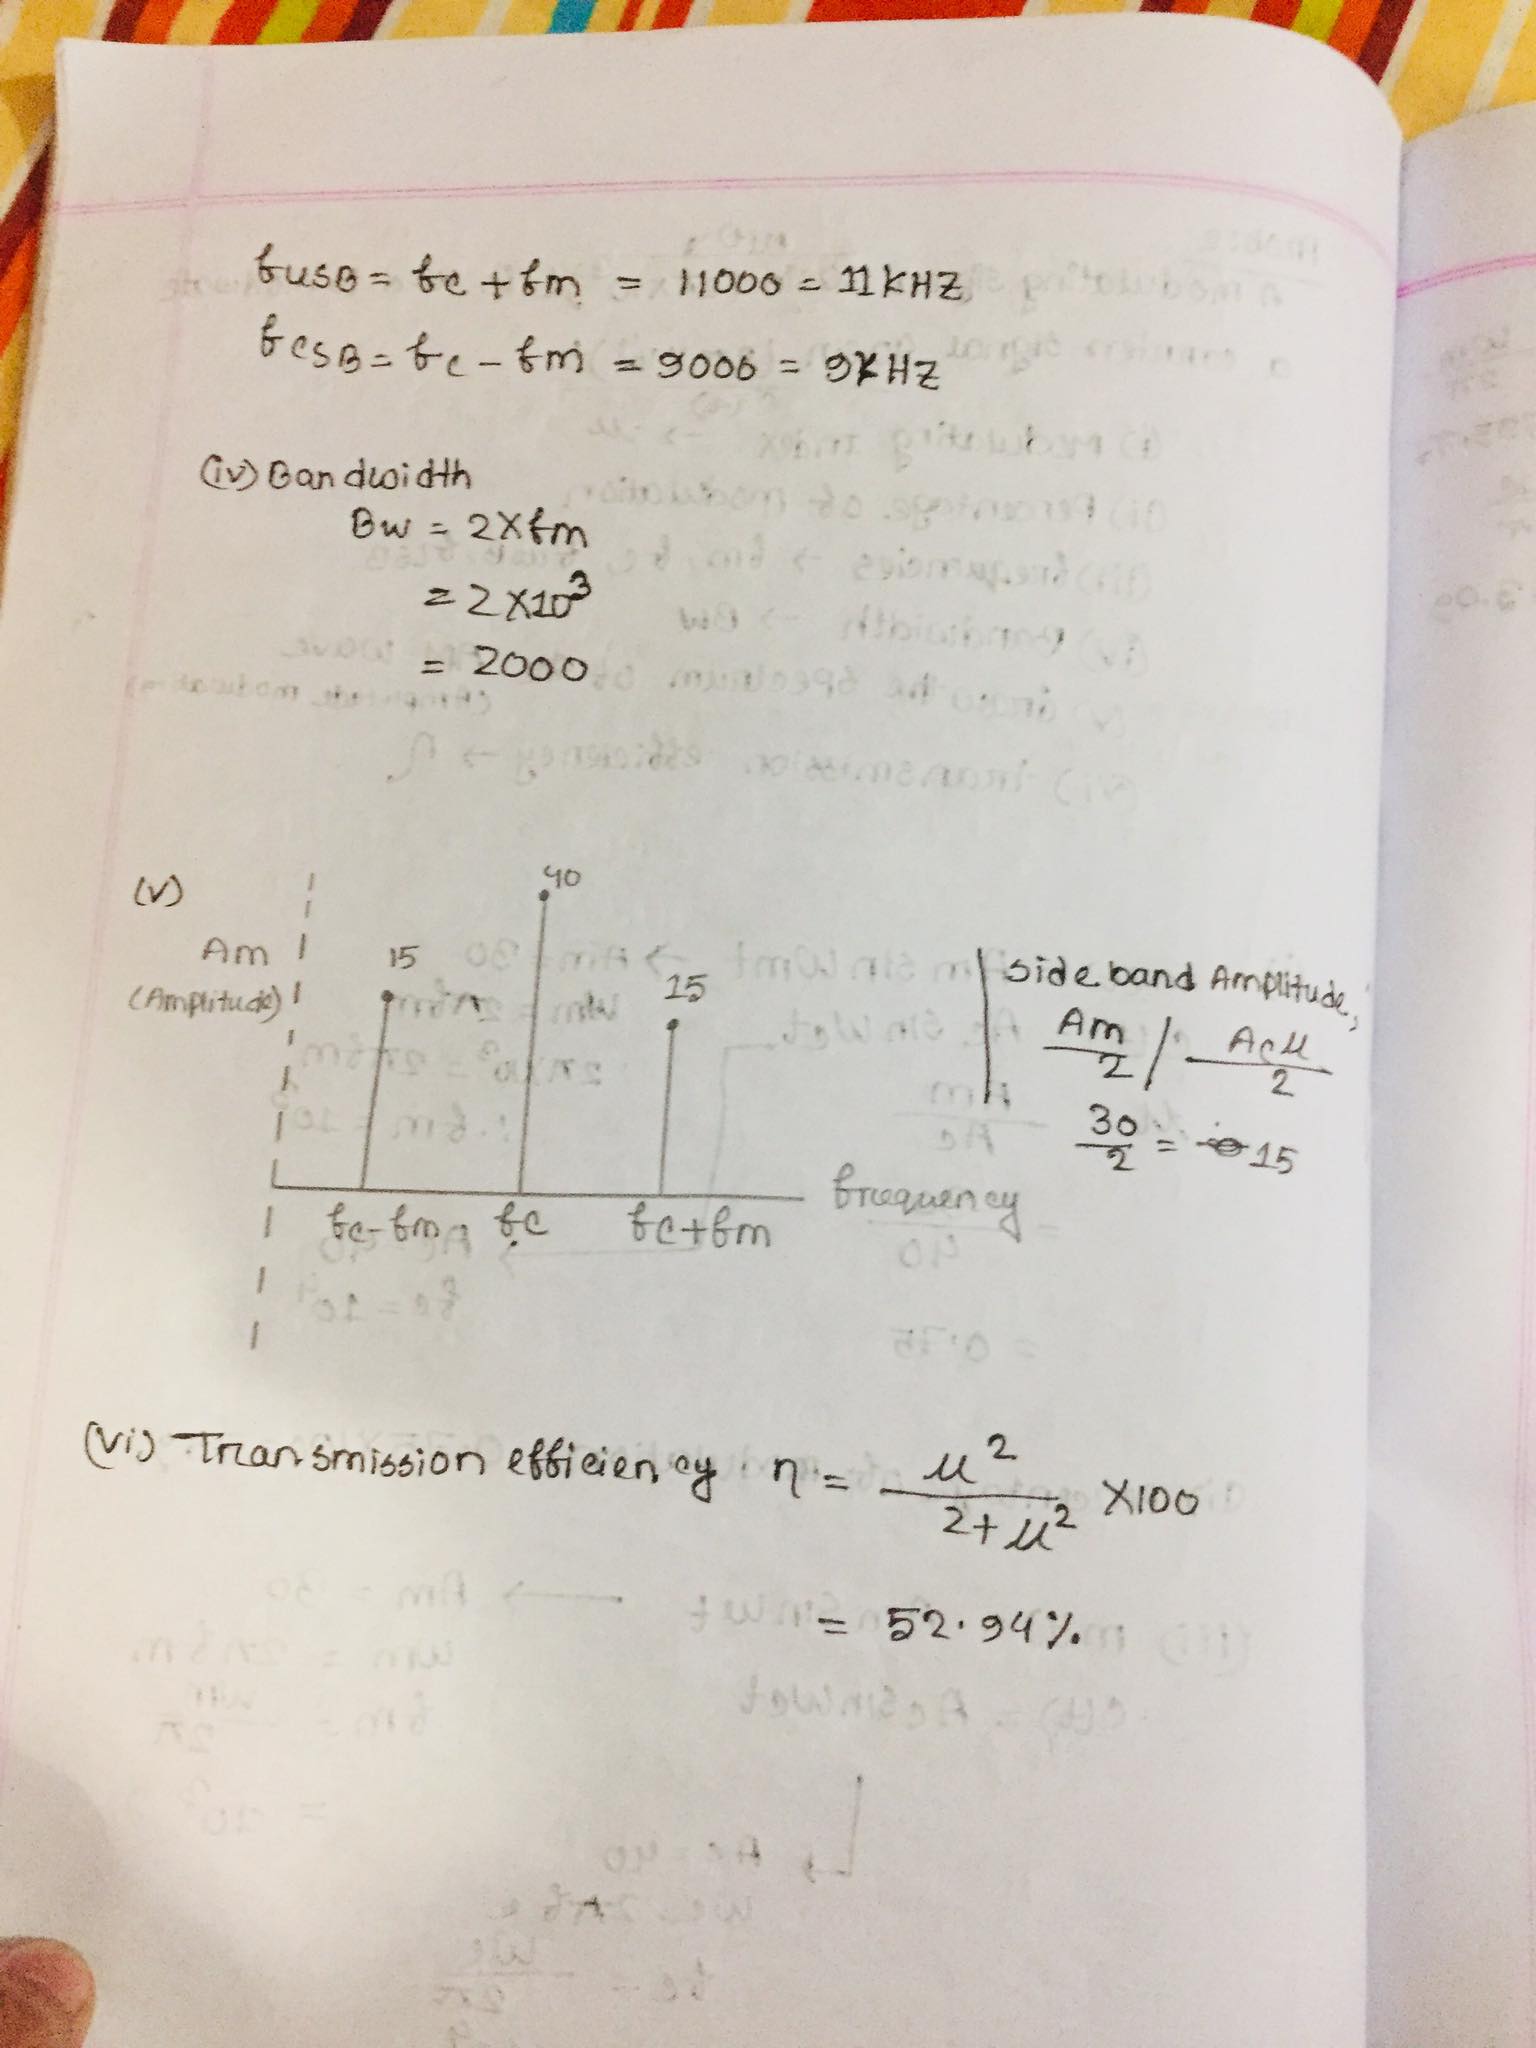 fUSB = fc + fm = 11000 = 11KHZ
fLSB = fc - fm = 9000 = 9KHZ
(iv) Bandwidth
BW = 2Xfm
= 2X10³
= 2000
(v)
Am
(Amplitude)
15
40
15
fc-fm
fc
fc+fm
frequency
Side band Amplitude,
Am/2 / Acμ/2
30/2 = 15
(vi) Transmission efficiency η = μ²/2+μ² X100
= 52.94%